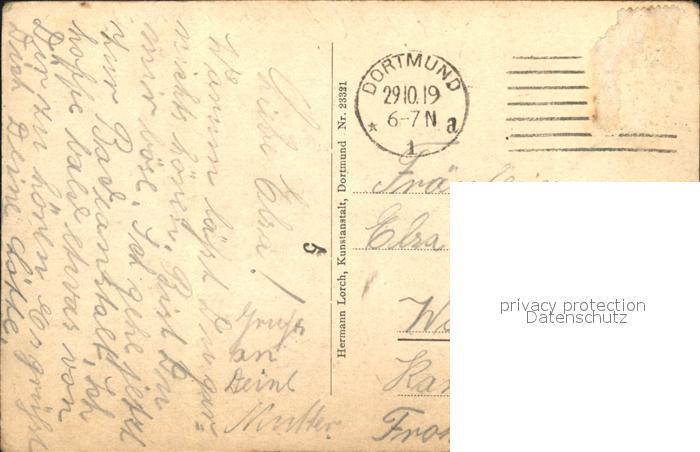 Liebe Elsa!
Warum läßt Du gar-
nichts hören. Bist Du
mir böse. Ich gehe jetzt
zur Badeanstalt. Ich
hoffe bald etwas von
Dir zu hören. Es grüßt
Dich Deine Lotte.
Gruß
an
Deine
Mutter
5
Hermann Lorch, Kunstanstalt, Dortmund Nr. 23321
DORTMUND
29.10.19
6-7N
* 1 a
Elsa
privacy protection
Datenschutz